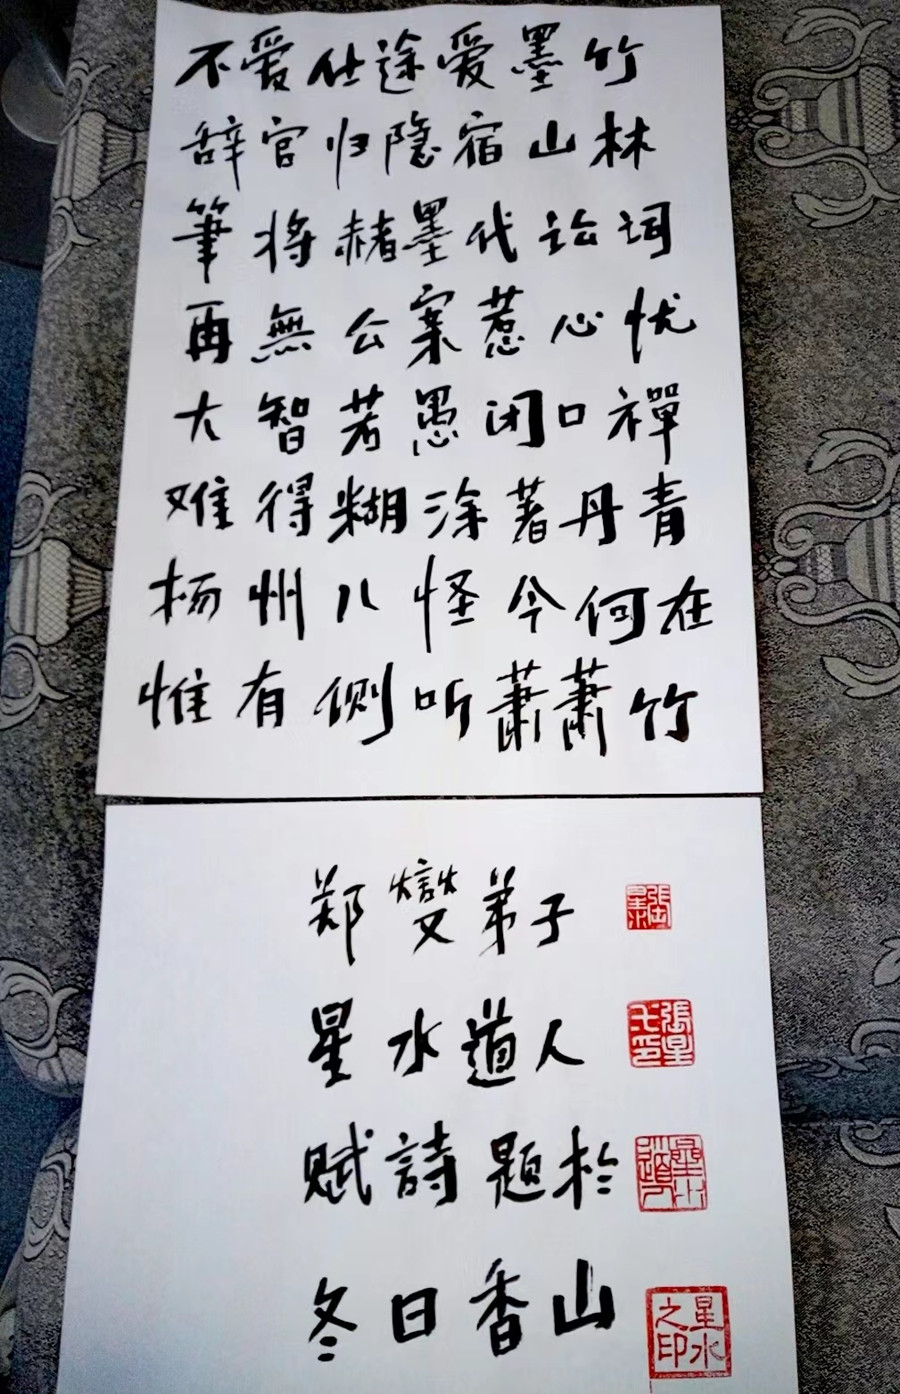 不爱仕途爱墨竹
辞官归隐宿山林
筆将赭墨代讼词
再無公案惹心忧
大智若愚闭口禪
难得糊涂著丹青
杨州八怪今何在
惟有侧听萧萧竹
郑燮弟子
星水道人
赋詩题於
冬日香山
張星
星水之印